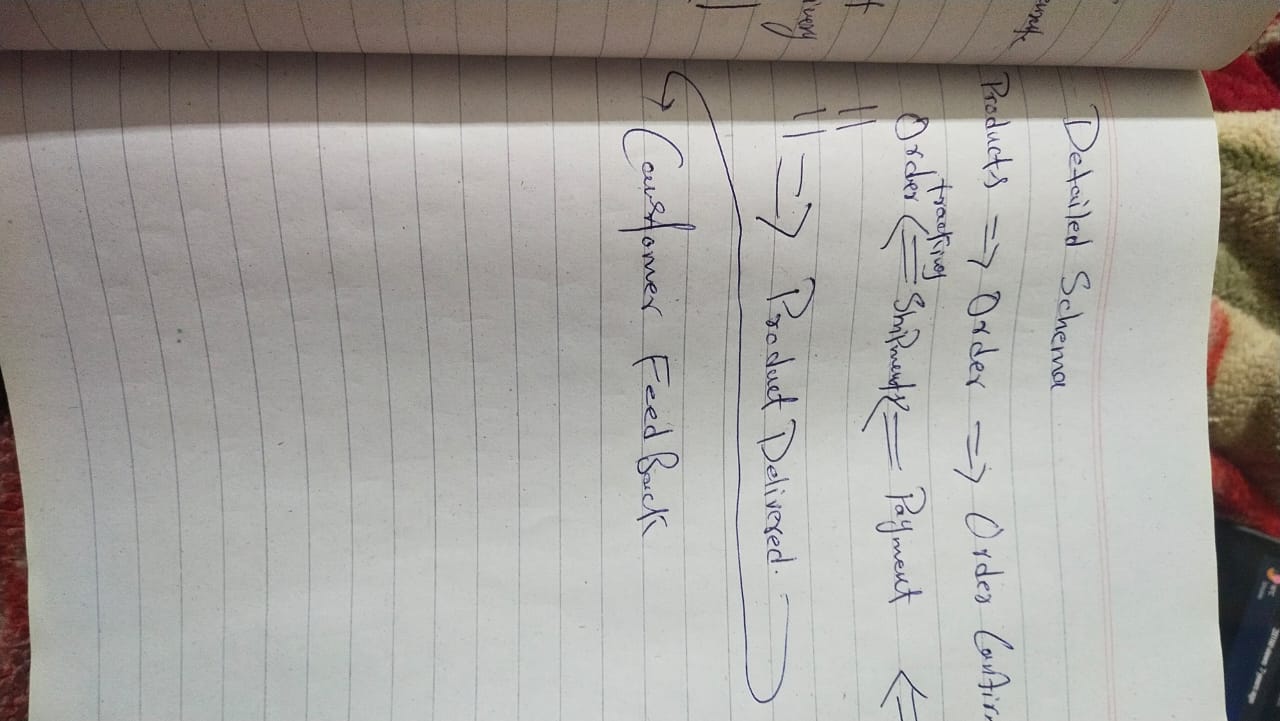 Detailed Schema
Products => Order => Order Confir
tracking
Order <= Shipments <= Payment <=
=> Product Delivered.
Coustomer FeedBack